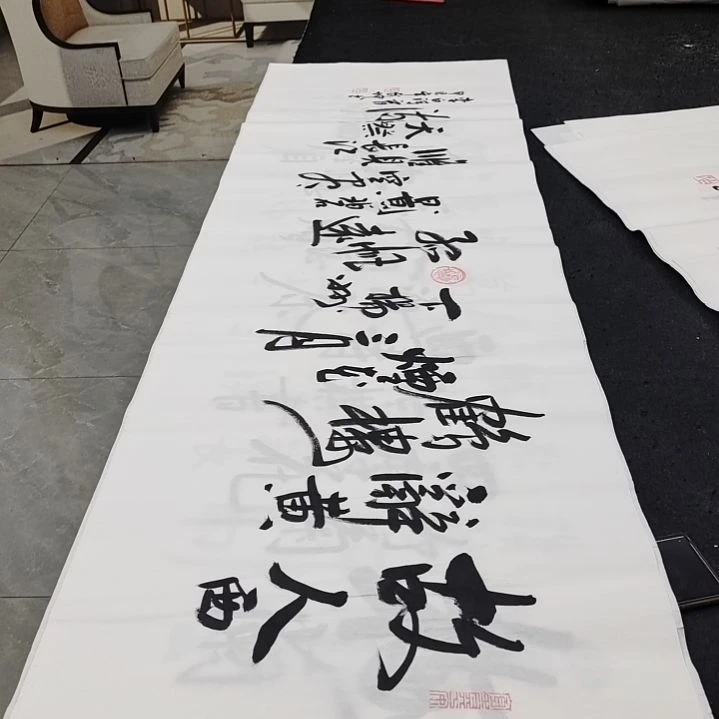 故人西
辭黄
鶴樓
煙花
三月
下揚州
孤帆遠
影碧
空尽
惟見長江
天際流
李白詩